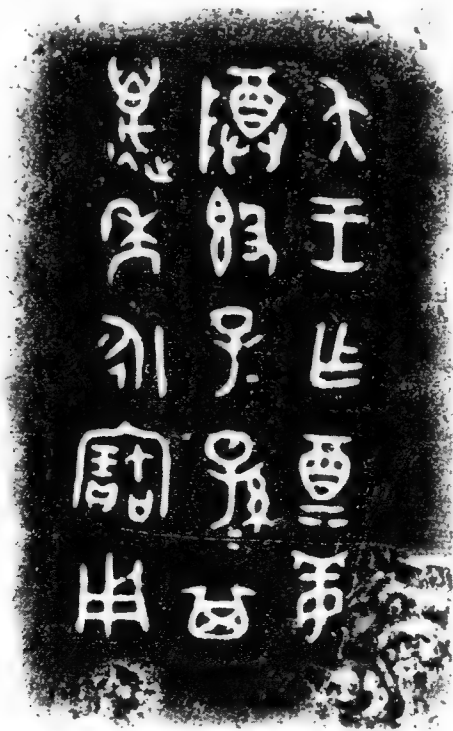 夨王乍奠姜
𨺅𣪘子＝孫＝其
萬年永寶用